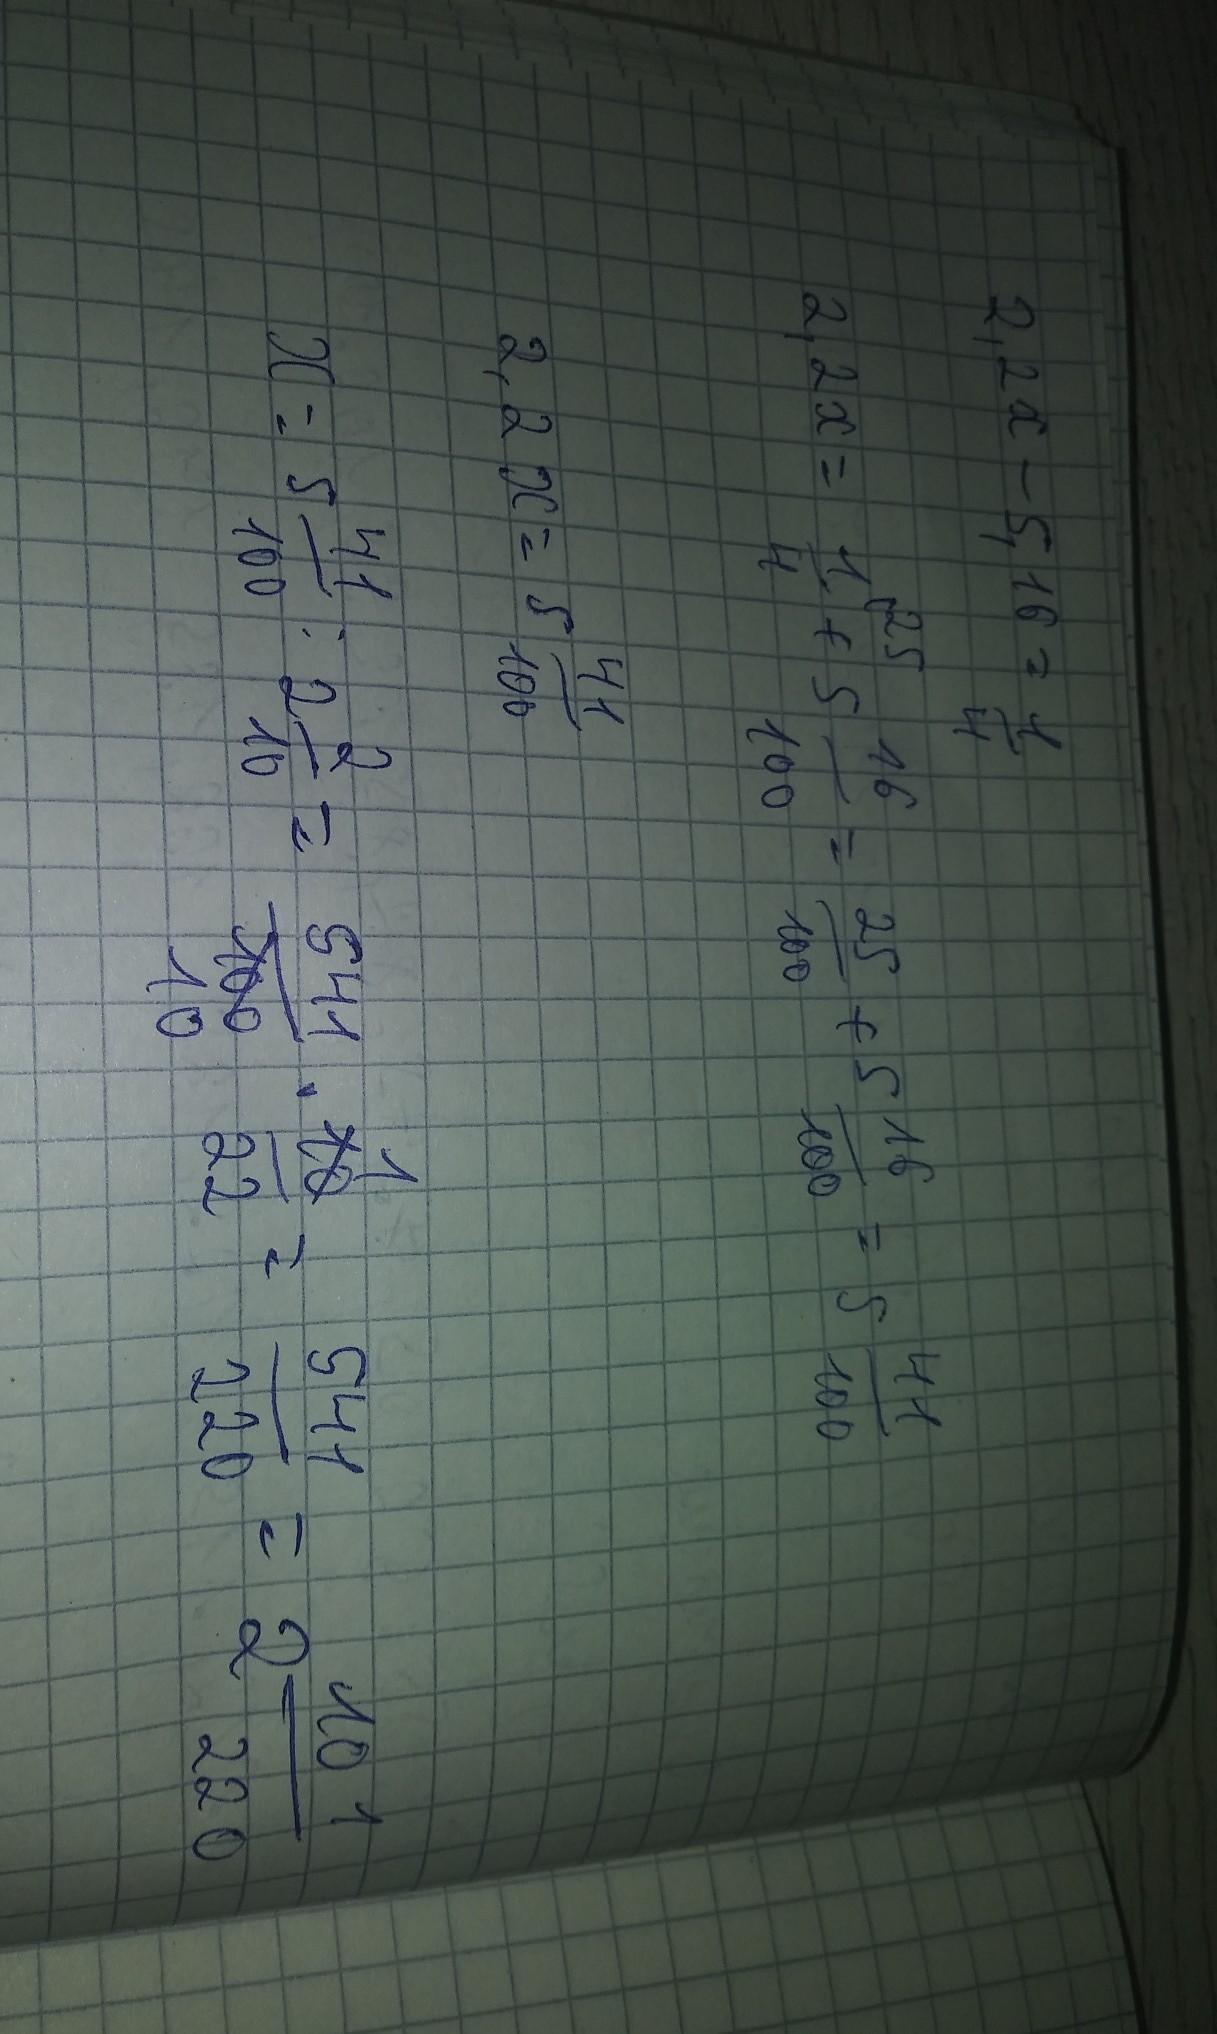 2,2x - 5,16 = 1/4
2,2x = 1/4 (25 + 5 16/100 = 25/100 + 5 16/100 = 5 41/100
2,2x = 5 41/100
x = 5 41/100 : 2 2/10 = 541/100 10 · 10/22 1 = 541/220 = 2 101/220